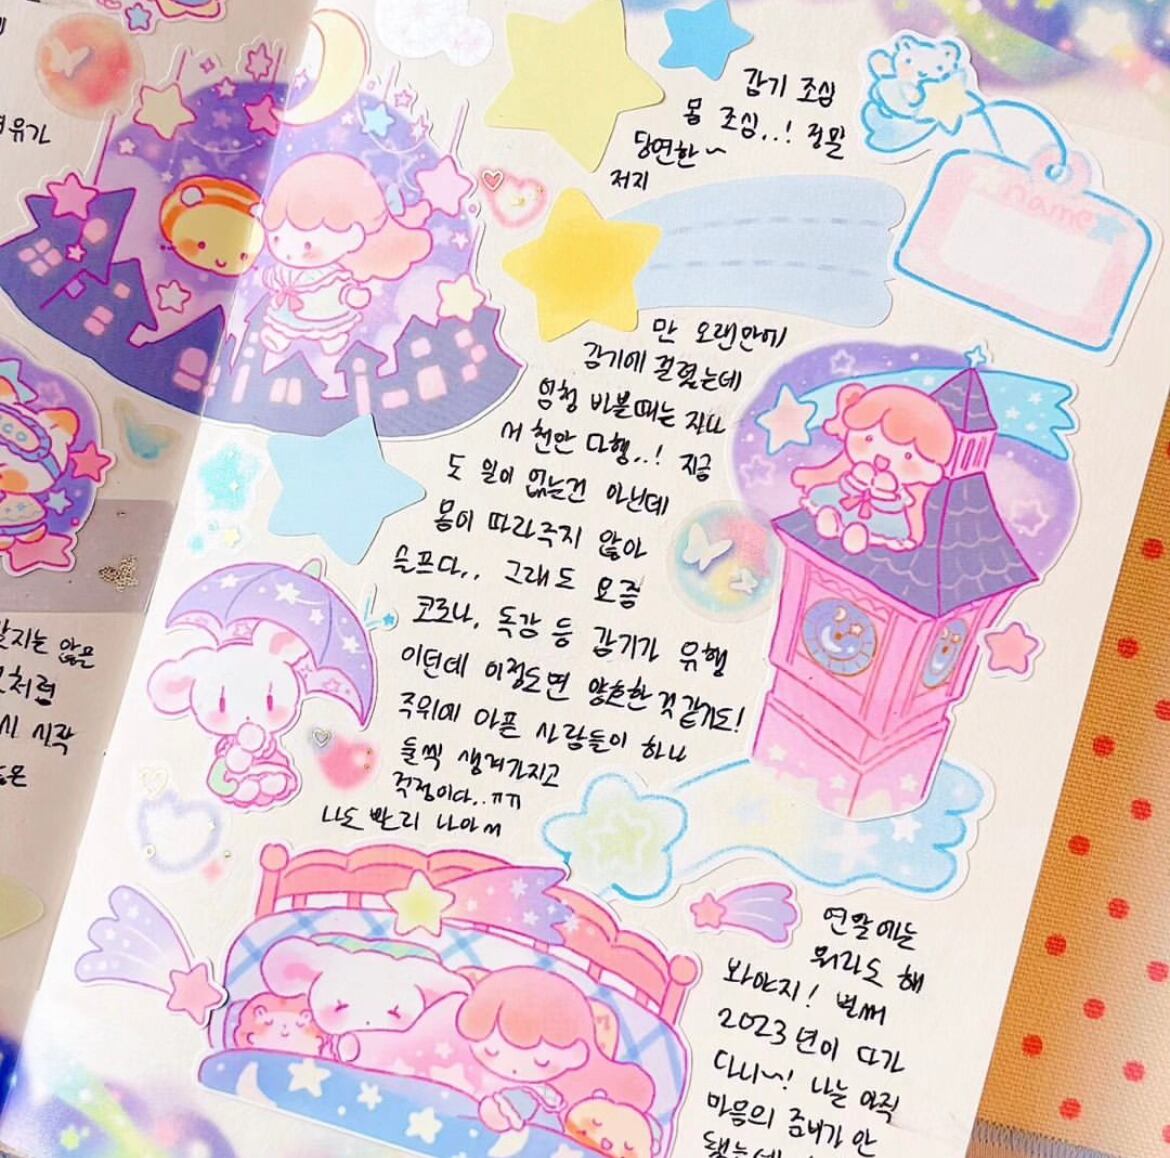 감기 조심
몸 조심..! 정말
당연한~
저지
name
만 오랜만에
감기에 걸렸는데
엄청 바쁠때는 지나
서 천만 다행..! 지금
도 일이 없는건 아닌데
몸이 따라주지 않아
슬프다.. 그래도 요즘
코로나, 독감 등 감기가 유행
이던데 이정도면 양호한 것 같기도!
주위에 아픈 사람들이 하나
둘씩 생겨가지고
걱정이다..ㅠㅠ
나도 빨리 나아서
연말에는
뭐라도 해
봐야지! 벌써
2023년이 다가
다니~! 나는 아직
마음의 준비가 안
됐는데
유가
지는 않은
처럼
시 시작